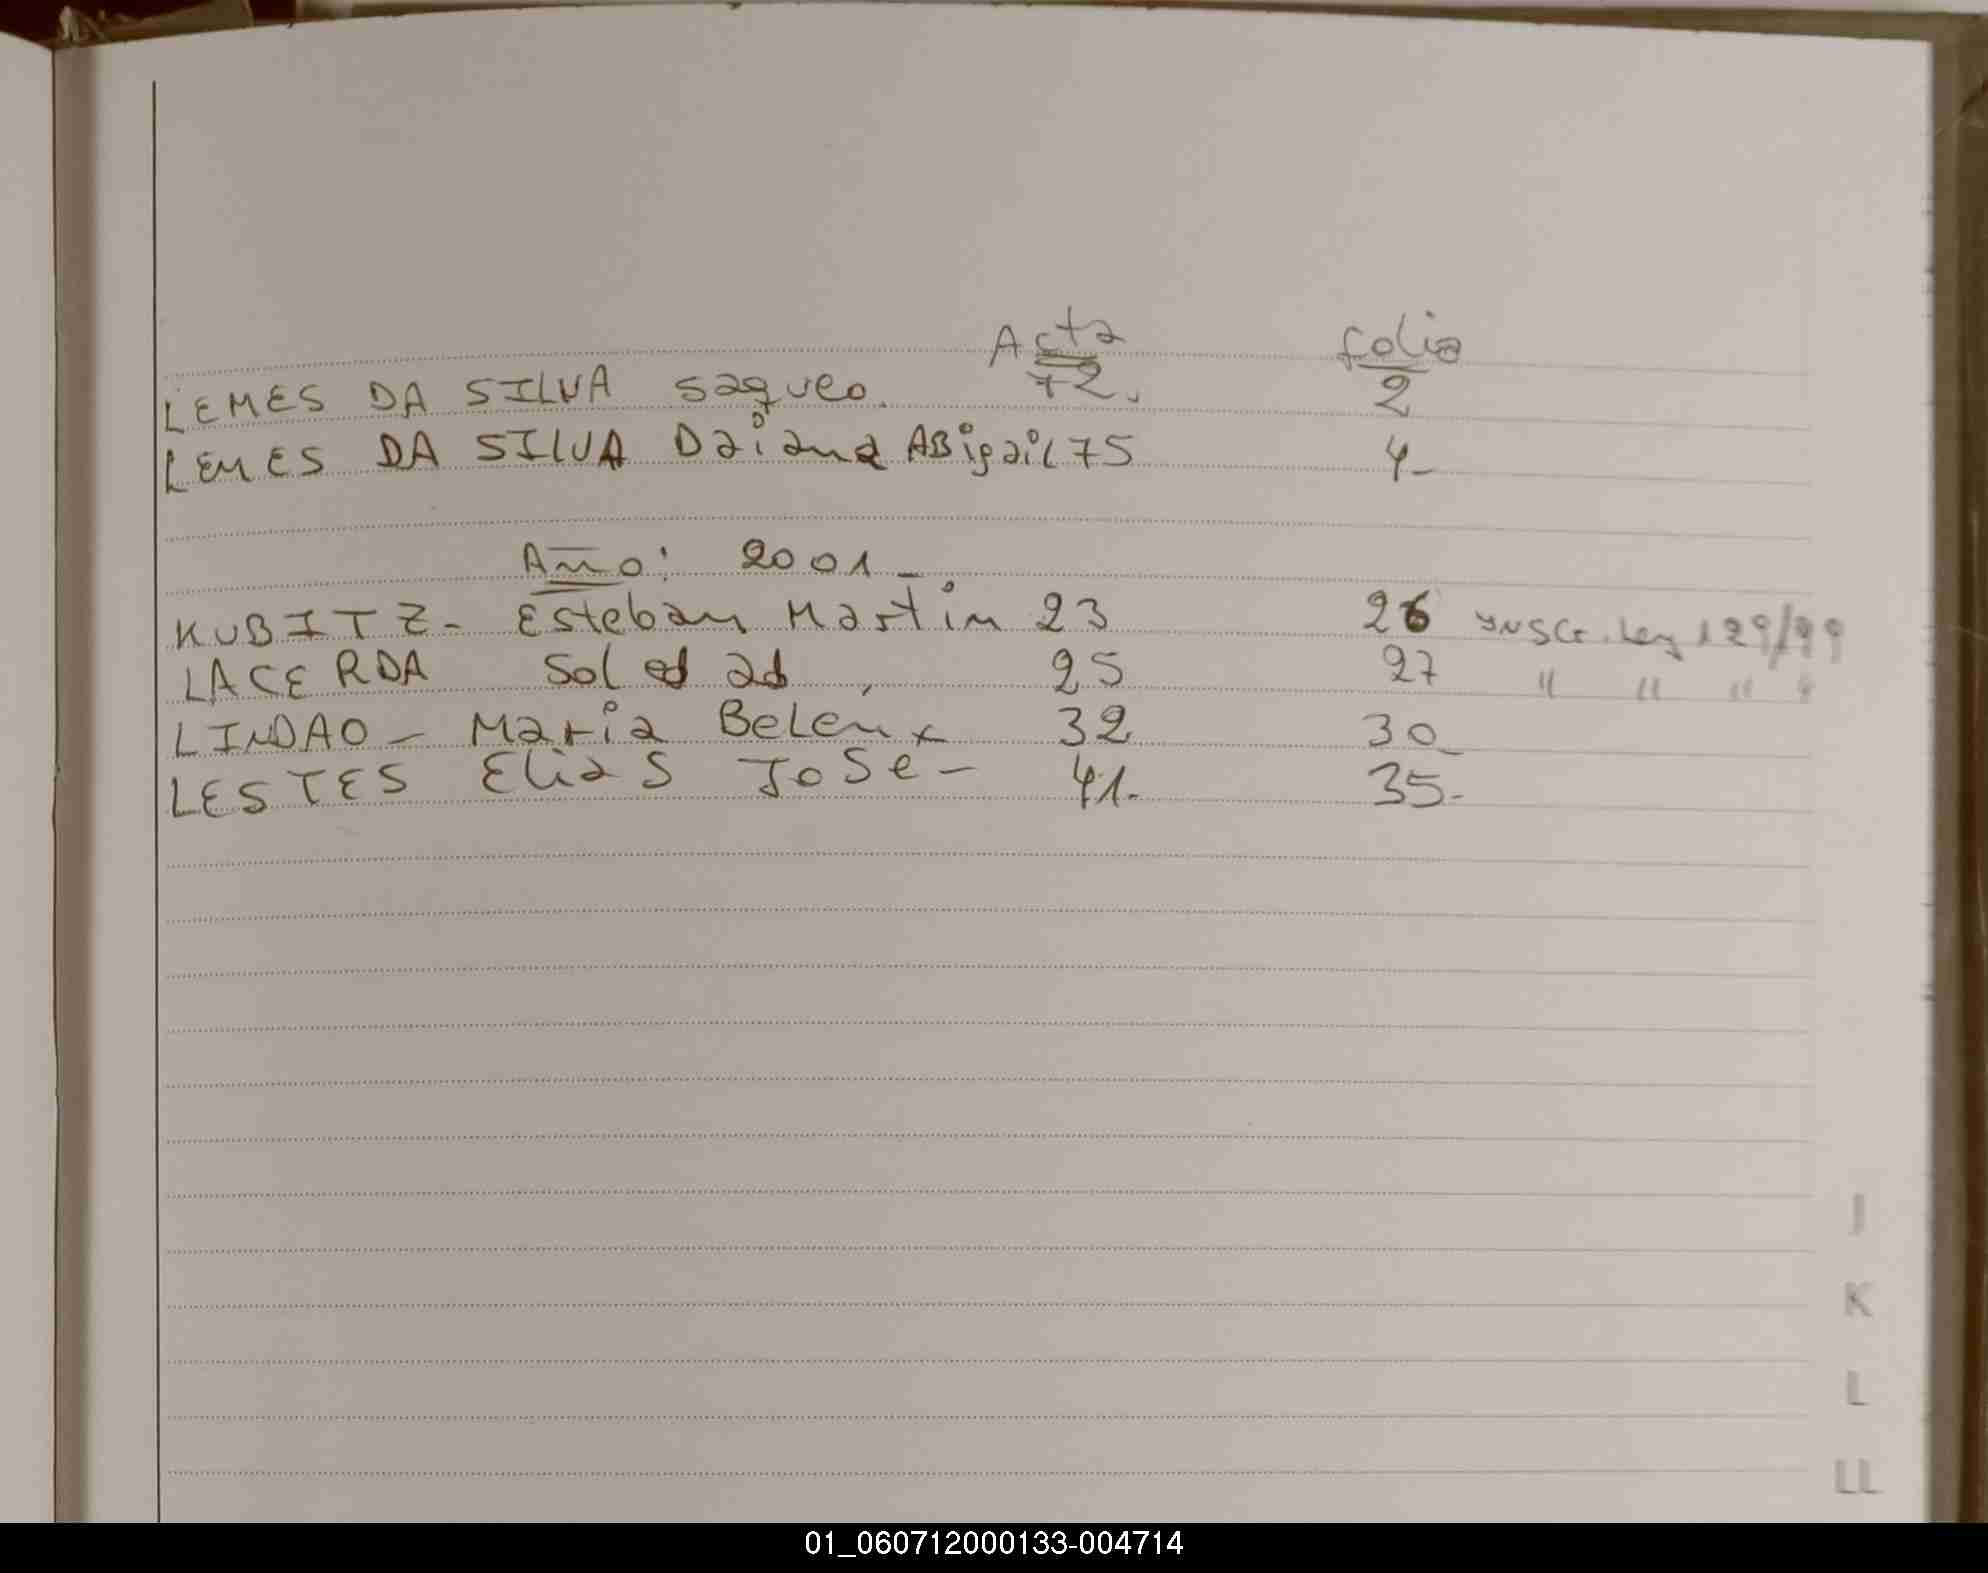 Acta folio
LEMES DA SILVA saqueo. 72. 2
LEMES DA SILVA Daiana ABigail 75 4-
Año: 2001_
KUBITZ- Esteban Martin 23 26 INSCr. Ley 129/99
LACERDA Soledad, 25 27 " " " "
LINDAO - Maria Belen 32 30_
LESTES Elias Jose - 41- 35-
I
K
L
LL
01_060712000133-004714